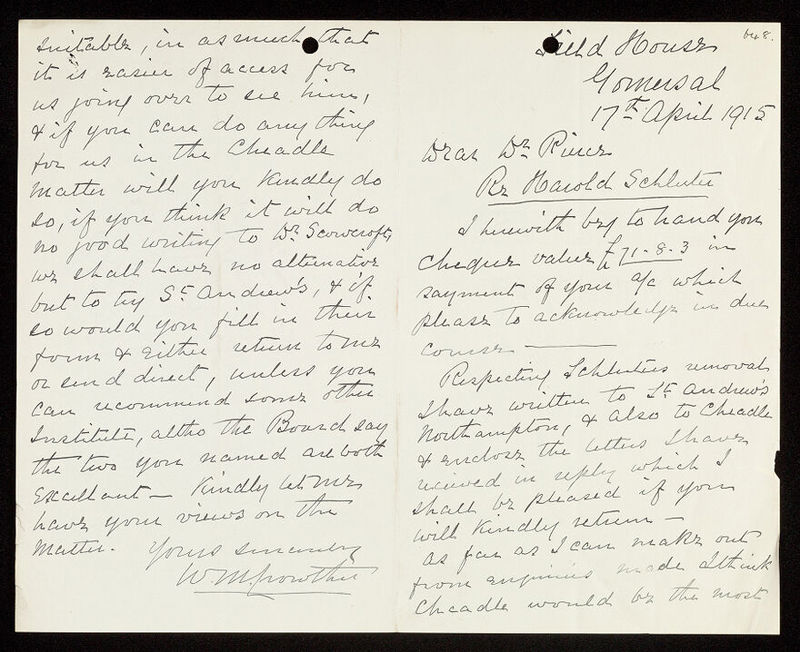 648.
Field House
Gomersal
17th April 1915
Dear Dr Pierce
Re Harold Schluter
I herewith beg to hand you
cheque value £71-8-3 in
payment of your a/c which
please to acknowledge in due
course
Respecting Schluters removal
I have written to St Andrew's
Northampton, & also to Cheadle
& enclose the letters I have
recieved in reply which I
shall be pleased if you
will kindly return -
As far as I can make out
from enquiries made I think
Cheadle would be the most
suitable, in as much that
it is easier of access for
us going over to see him,
& if you can do anything
for us in the Cheadle
matter will you kindly do
so, if you think it will do
no good writing to Dr Scowcroft,
we shall have no alternative
but to try St Andrew's, & if
so would you fill in their
form & either return to me
or send direct, unless you
can recommend some other
Institute, altho the Board say
the two you named are both
excellant - Kindly let me
have your views on the
matter. Yours sincerely
W M Crowther